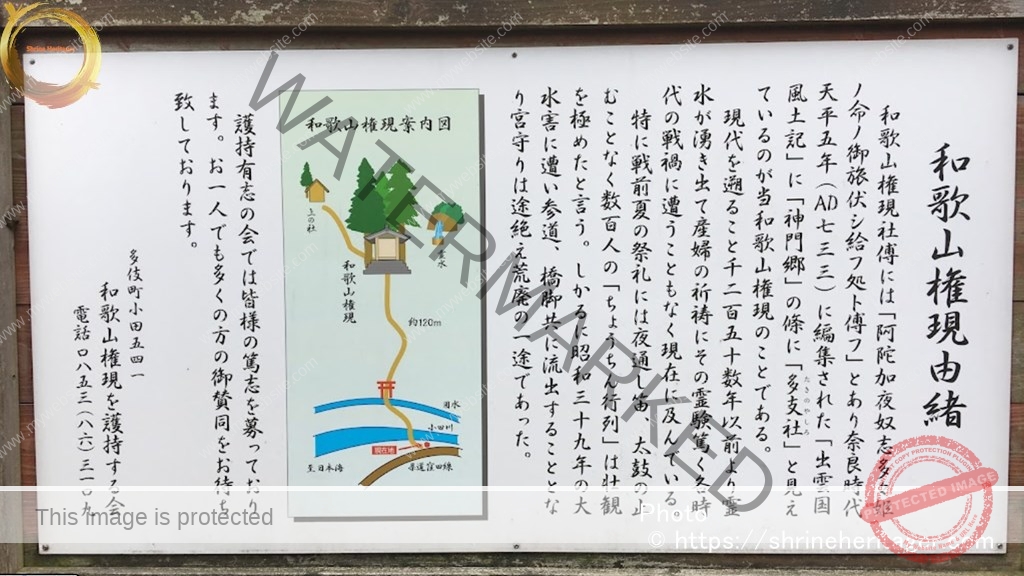 和歌山権現由緒
和歌山権現社傳には「阿陀加夜奴志多
ノ命ノ御旅伏シ給フ処ト傳フ」とあり奈良時代
天平五年（AD七三三）に編集された「出雲国
風土記」に「神門郷」の條に「多支社」と見え
たきのやしろ
ているのが当和歌山権現のことである。
現代を遡ること千二百五十数年以前より霊
水が湧き出て産婦の祈祷にその霊験篤く各時
代の戦禍に遭うこともなく現在に及んでいる
特に戦前夏の祭礼には夜通し笛、太鼓の止
むことなく数百人の「ちょうちん行列」は壮観
を極めたと言う。しかるに昭和三十九年の大
水害に遭い参道、橋脚共に流出することとな
り宮守りは途絶え荒廃の一途であった。
和歌山権現案内図
上の社
霊水
和歌山権現
約120m
用水
小田川
現在地
至日本海
県道窪田線
護持有志の会では皆様の篤志を募っており
ます。お一人でも多くの方の御賛同をお待ち
致しております。
多伎町小田五四一
和歌山権現を護持する会
電話〇八五三（八六）三一〇九
WATERMARKED
Shrine Heritager
This image is protected
Photo
© https://shrineheritager.com
PROTECTED IMAGE